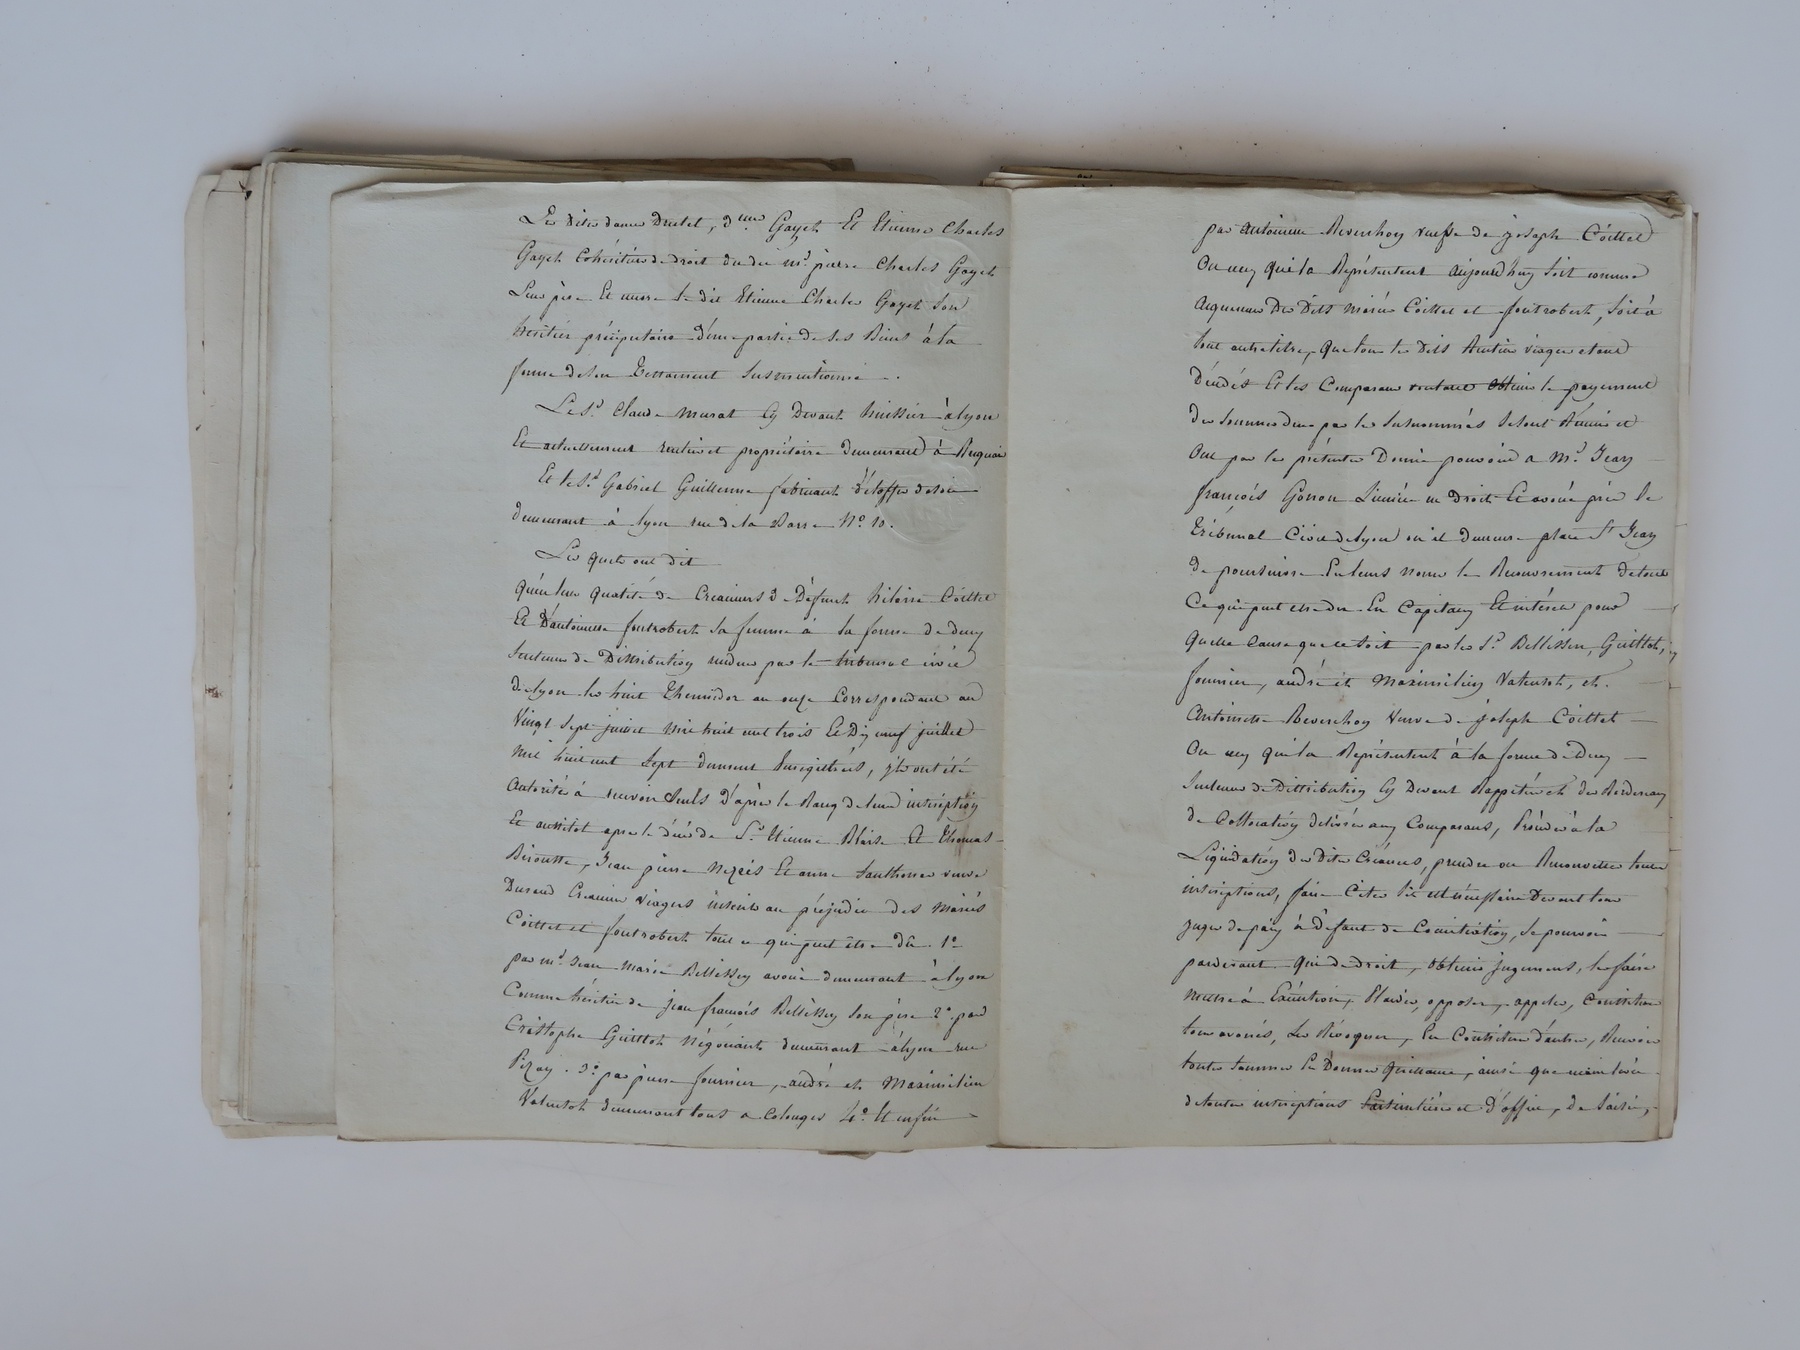 Les dites dames Drutel, d.lle Gayet Et Etienne Charles
Gayet Cohéritiers de droit du dit mr. pierre Charles Gayet
Leur père Et encore le dit Etienne Charles Gayet Son
héritier préciputaire d'une partie de ses Biens à la
forme de son Testament Susmentionné.
Le Sr. Claude Murat Cy Devant huissier à lyon
Et actuellement rentier et propriétaire demeurant à
Et le Sr. Gabriel Guillerme fabricant d'étoffes de soie
demeurant à lyon rue de la Barre No. 10.
Les quels ont dit
Qu'en leur qualité de Créanciers de Défunt hilaire Coittet
Et D'antoinette fontrobert Sa femme à la forme de deux
Sentences de Distribution rendues par le tribunal civil
de lyon les huit Thermidor an onze Correspondant au
Vingt Sept juillet mil huit cent trois Et Dix neuf juillet
mil huit cent Sept dument Enregistrées, ils ont été
Autorisés à recevoir Seuls D'après le Rang de leurs inscriptions
Et aussitot après le décès de Sr. Etienne Blaise Et Thomas
Jean pierre Et anne veuve
Durand Créanciers viagers inscrits au préjudice des Mariés
Coittet et fontrobert tout ce qui peut être dû. 1o.
par mr. Jean Marie Bellissen avoué demeurant à lyon
Comme héritier de jean françois Bellissen Son père 2o. par
Cristophe Guittot Négociant demeurant à lyon rue
Pizay. 3o. par pierre fournier, andré et Maximilien
Vatentot demeurant tous a Colonges 4o. Et enfin
par antoinette Reverchon veuve de joseph Coittet
Ou ceux qui la Représentent aujourd'huy Soit comme
acquereurs Des Dits Mariés Coittet et fontrobert, Soit à
tout autre titre, que tous les dits Rentiers viagers étant
Décédés Et les Comparans voulant obtenir le payement
des Sommes dues par les Susnommés Se sont Réunis et
Ont par les présentes Donné pouvoir a Mr. Jean
françois Gonon Licencié en Droit Et avoué près le
Tribunal Civil de lyon où il demeure place St Jean
De poursuivre En leurs noms le Recouvrement de tout
Ce qui peut être du En Capitaux Et intérêts pour
Quelle cause que ce soit par les Srs. Bellissen, Guittot,
fournier, andré et Maximilien Vatentot, et.
Antoinette Reverchon Veuve de joseph Coittet
Ou ceux qui la Représentent à la forme de Deux
Sentences de Distribution Cy Devant Rappelées et des Bordereaux
de Collocation délivrés aux Comparans, procéder à la
Liquidation des Dites Créances, prendre ou Renouveller toutes
inscriptions, faire Citer S'il est nécessaire Devant tous
juges de paix à Défaut de Conciliation, Se pourvoir
pardevant qui de droit, obtenir jugemens, les faire
mettre à Exécution, Plaider, opposer, appeler, Constituer
tous avoués, Les Révoquer, En Constituer d'autres, Recevoir
toutes Sommes En Donner quittance, ainsi que main levée
de toutes inscriptions Particulières et D'office, De Saisies,